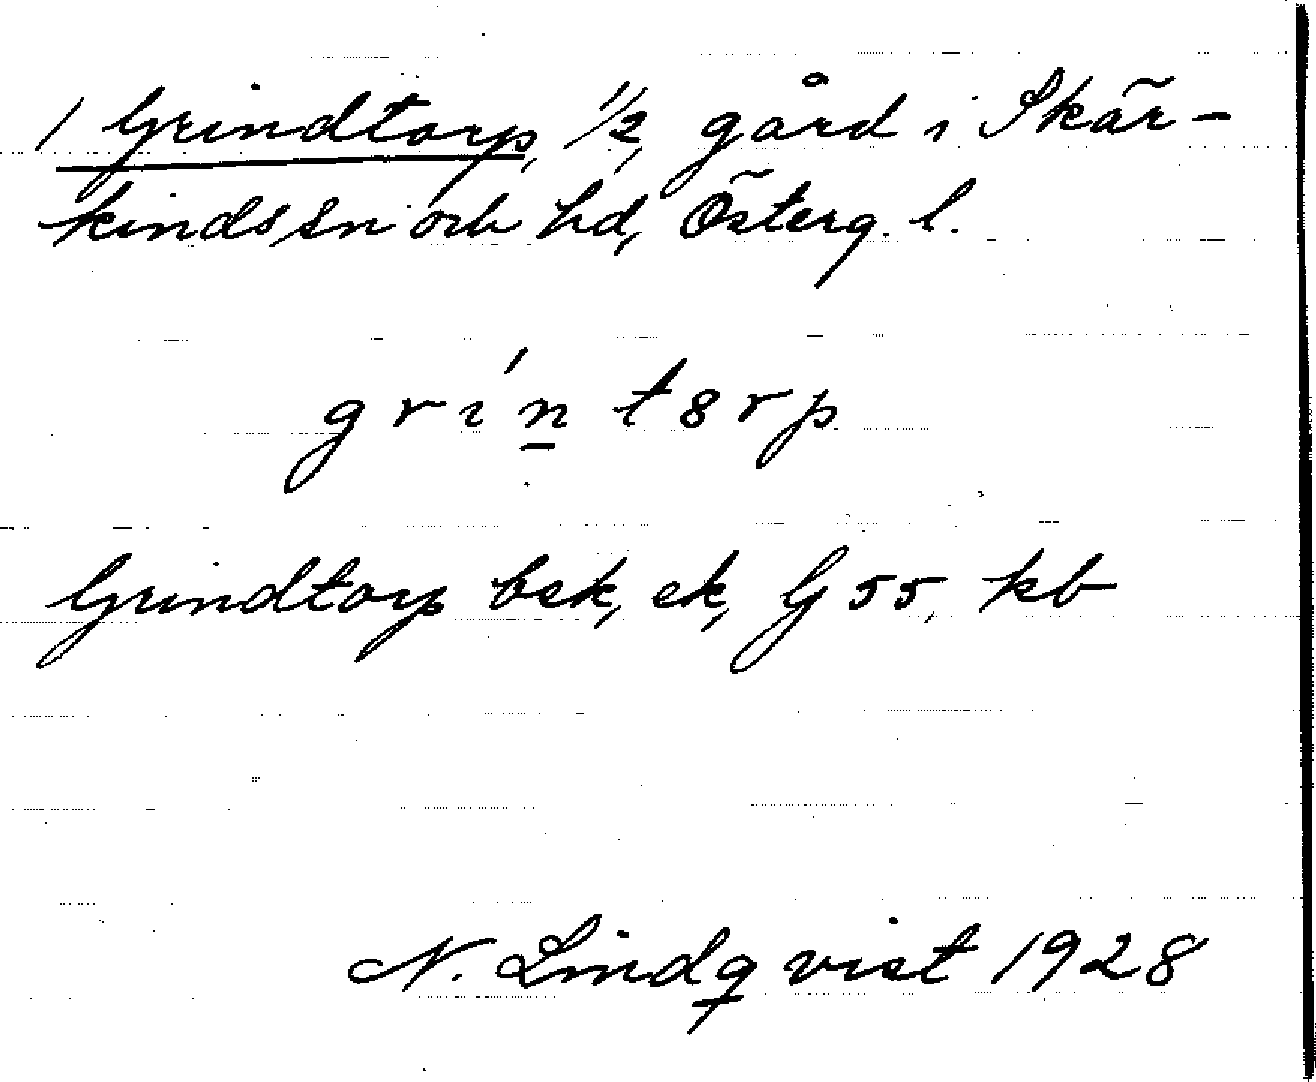 1 Grindtorp, 1/2, gård i Skär-
kinds sn och hd, Österg. l.
gríṉtȣrp
Grindtorp bek, ek, G 55, kb
N. Lindqvist 1928